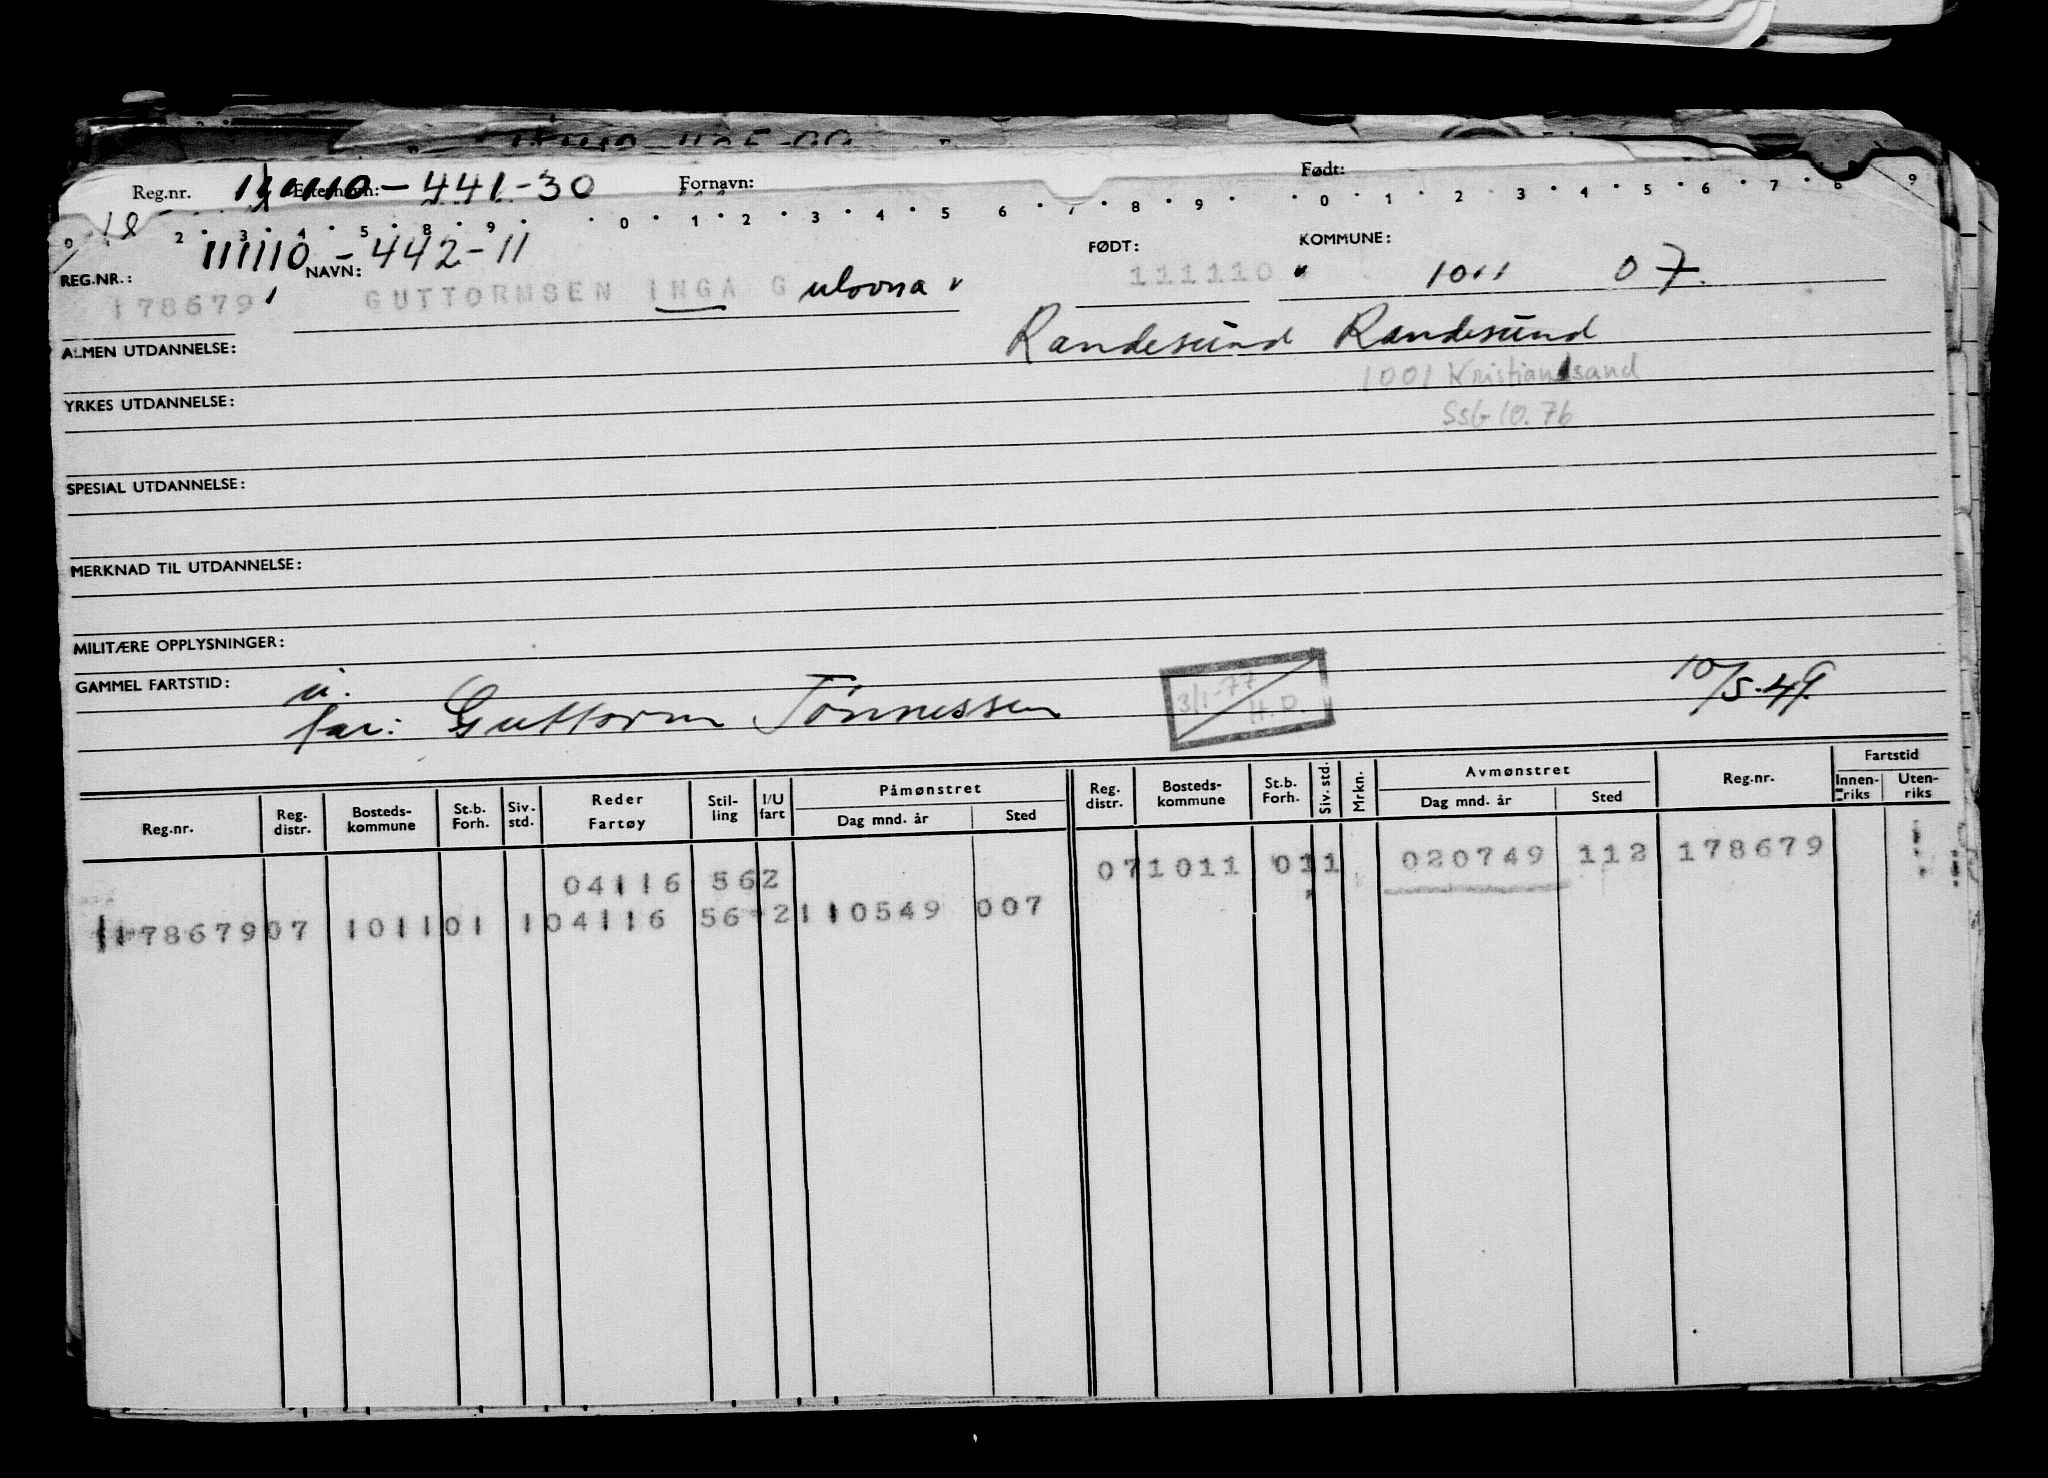 Reg.nr. 111110-441-30 Etternavn: Fornavn: Født:
0 1 2 3 4 5 6 7 8 9
18 0 2 3 4 5 8 9 0 1 2 3 4 5 6 7 8 9
111110-442-11
REG.NR.: NAVN: FØDT: KOMMUNE:
178679 GUTTORMSEN INGA G ulovsa 111110 1011 07.
ALMEN UTDANNELSE: Randesund Randesund
1001 Kristiansand
YRKES UTDANNELSE: SSG 10.76
SPESIAL UTDANNELSE:
MERKNAD TIL UTDANNELSE:
MILITÆRE OPPLYSNINGER:
GAMMEL FARTSTID: u. 3/1-77 H.P. 10/5-49.
far: Guttorm Tönnessen
Reg.nr. Reg. distr. Bosteds-kommune St.b. Forh. Siv. std. Reder Fartøy Stil-ling I/U fart Påmønstret Dag mnd. år Sted Reg. distr. Bosteds-kommune St.b. Forh. Siv. std. Mrkn. Avmønstret Dag mnd. år Sted Reg.nr. Fartstid Innen-riks Uten-riks
04116 562 071011 011 020749 112 178679
17867907 101101 104116 56 2110549 007